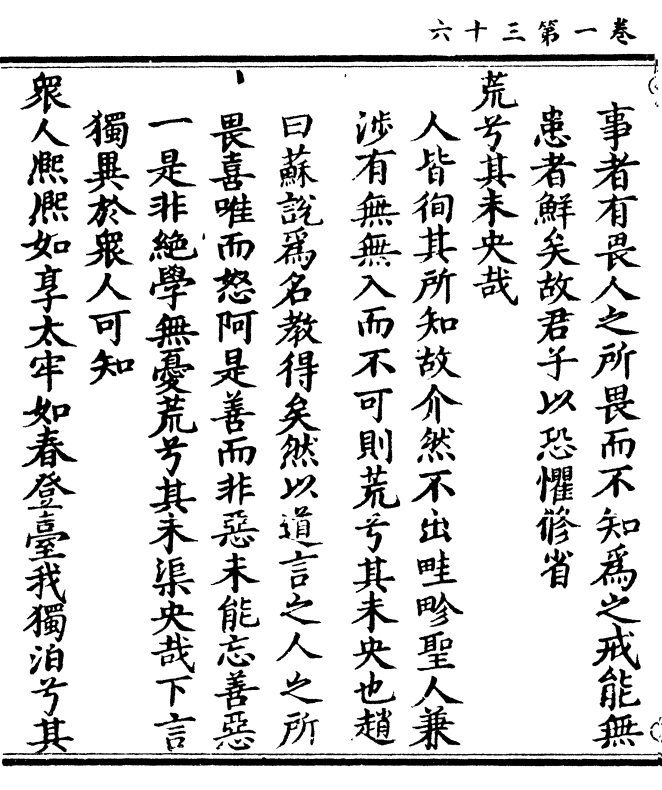 卷一第三十六
事者有畏人之所畏而不知爲之戒能無
患者鮮矣故君子以恐懼脩省
荒兮其未央哉
人皆徇其所知故介然不出畦畛聖人兼
涉有無無入而不可則荒兮其未央也趙
曰蘇說爲名教得矣然以道言之人之所
畏喜唯而怒阿是善而非惡未能忘善惡
一是非絕學無憂荒兮其未渠央哉下言
獨異於衆人可知
衆人熈熈如享太牢如春登臺我獨泊兮其